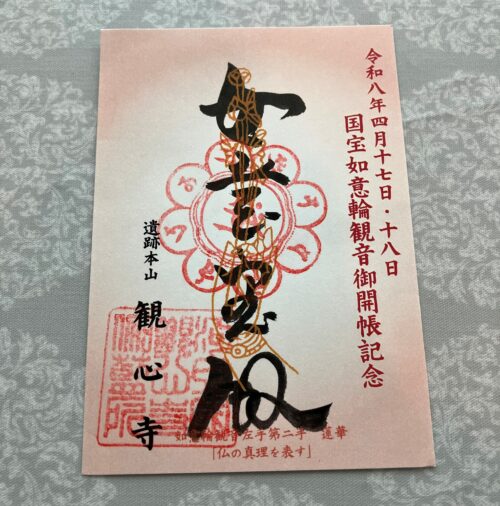 令和八年四月十七日・十八日
国宝如意輪観音御開帳記念
如意宝殿
遺跡本山
観心寺
如意輪観音左手第二手 蓮華
「仏の真理を表す」